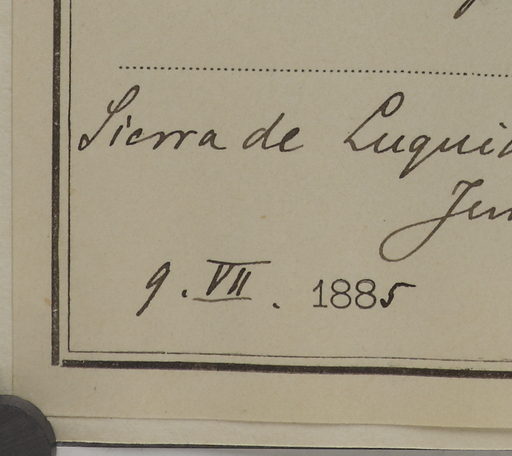 Sierra de Luqui
9. VII. 1885